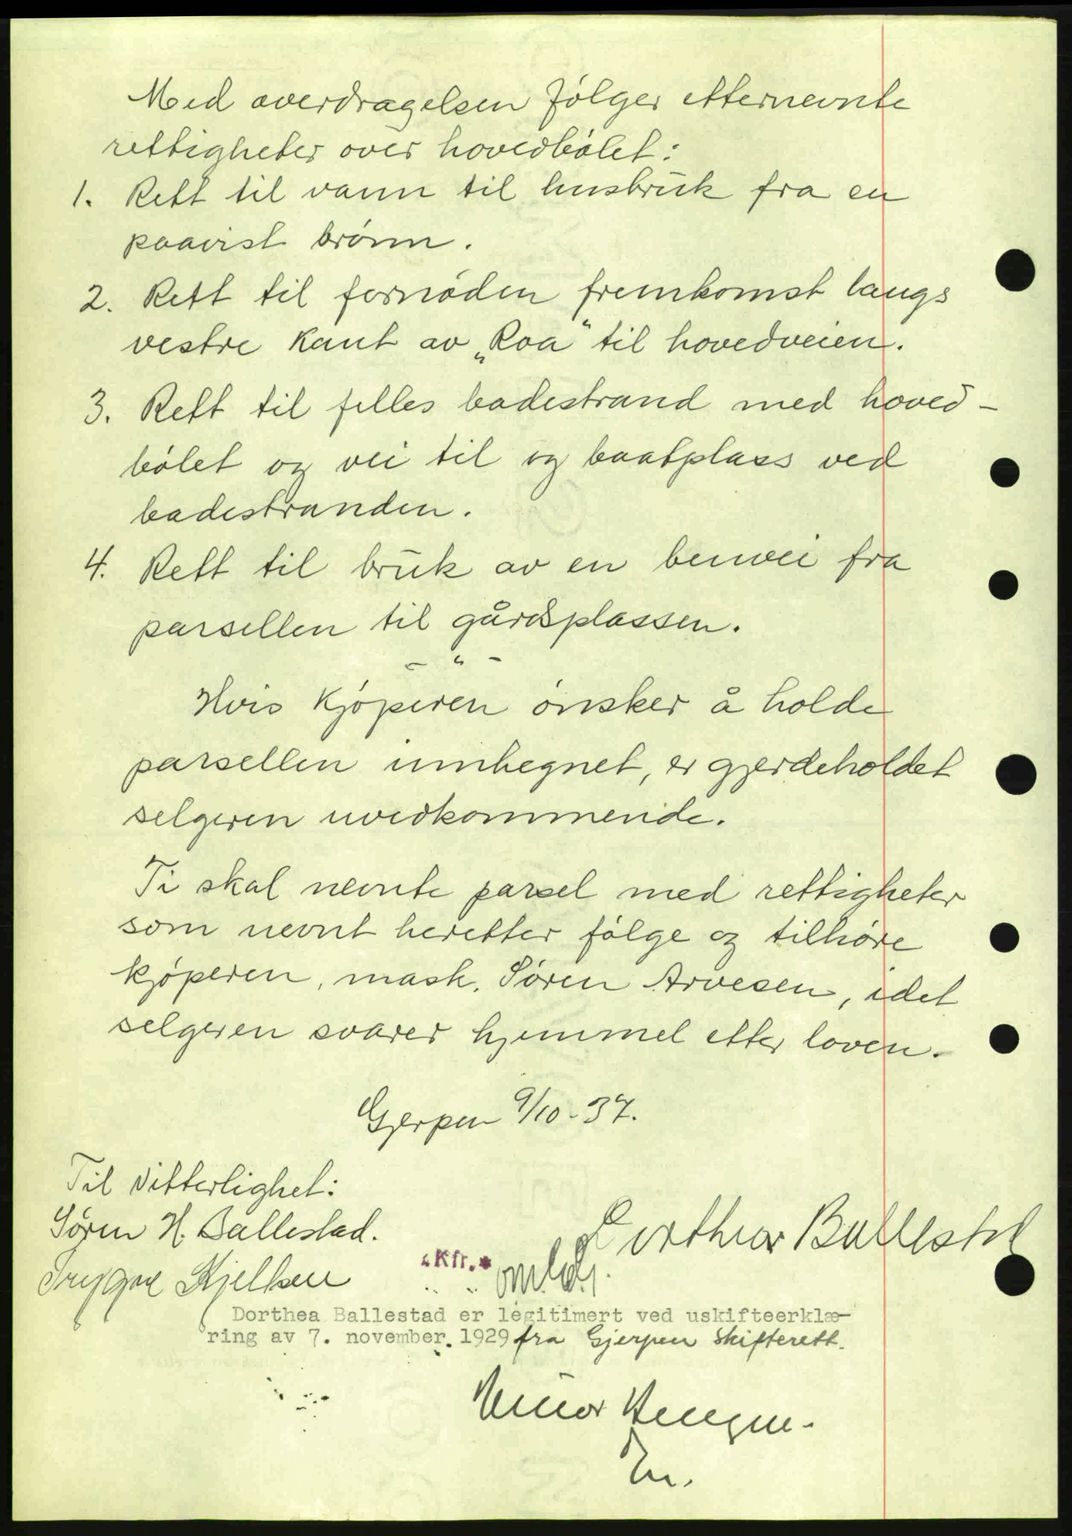 Med overdragelsen følger etternevnte
rettigheter over hovedbølet:
1. Rett til vann til husbruk fra en
paavist brønn.
2. Rett til fornøden fremkomst langs
vestre kant av „Roa“ til hovedveien.
3. Rett til felles badestrand med hoved-
bølet og vei til og baatplass ved
badestranden.
4. Rett til bruk av en benvei fra
parsellen til gårdsplassen.
- „ -
Hvis kjøperen ønsker å holde
parsellen innhegnet, er gjerdeholdet
selgeren uvedkommende.
Ti skal nevnte parsel med rettigheter
som nevnt heretter følge og tilhøre
kjøperen, mask. Søren Arvesen, idet
selgeren svarer hjemmel etter loven.
Gjerpen 9/10-37.
Til Vitterlighet:
Søren H. Ballestad.
Dorthea Ballestad
Trygve Kjelsen
"Kfr.*
Dorthea Ballestad er legitimert ved uskifteerklæ-
ring av 7. november 1929 fra Gjerpen Skifterett.